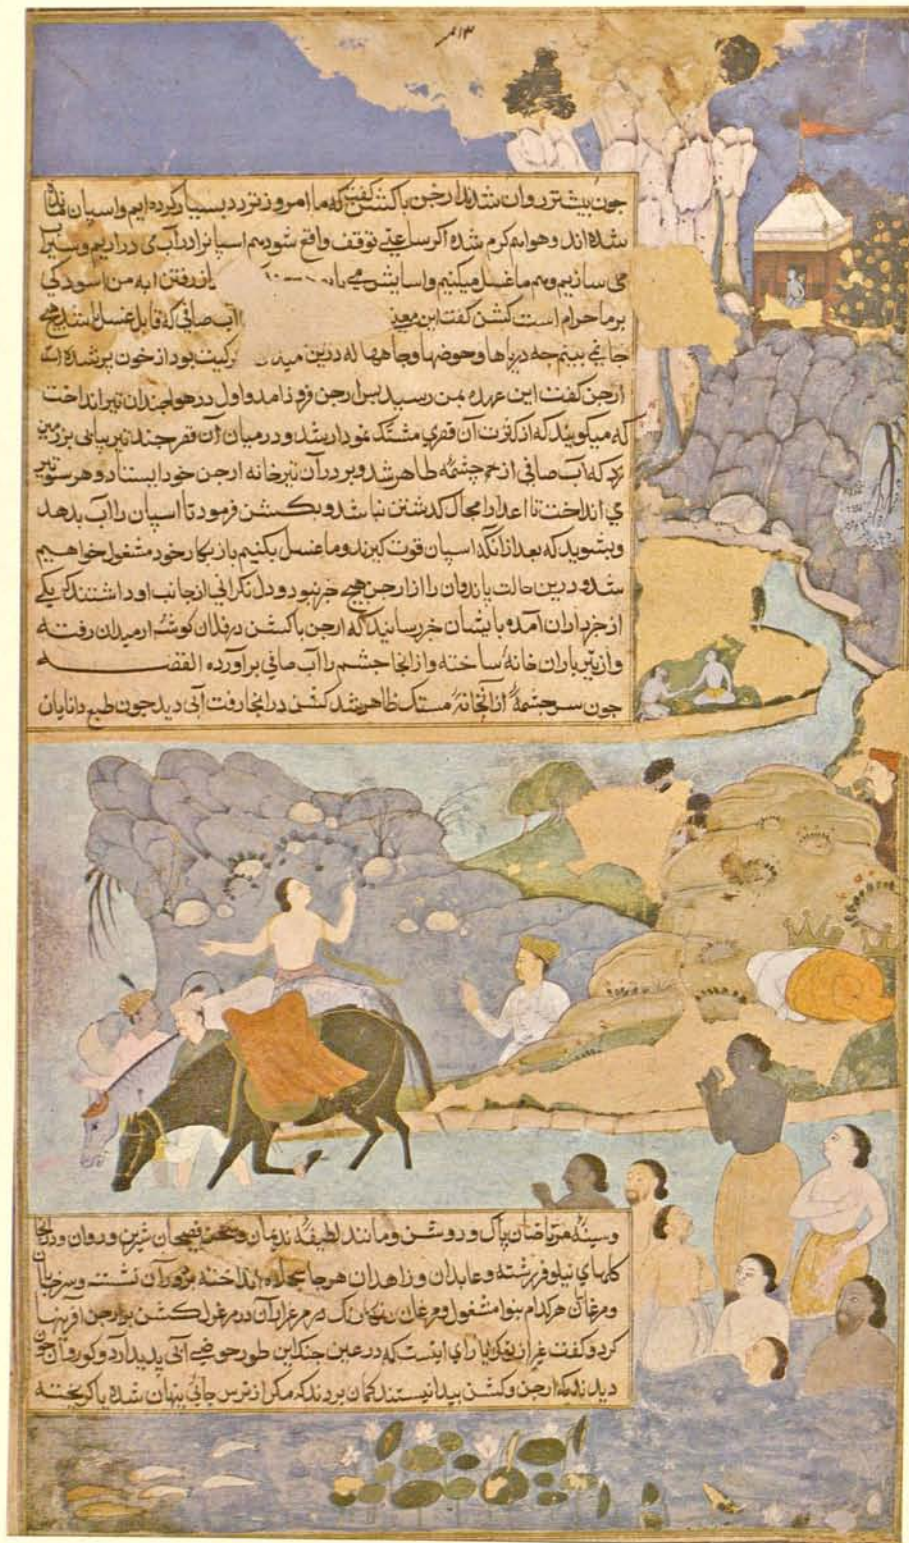 جون بیشتر روان شدند ارجن باکشن کفت که ما امروز تردد بسیار کرده ایم و اسپان مانده
شده اند و هوا هم کرم شده اکر ساعتی توقف واقع شود هم اسپانرا در آب می دراریم و سیراب
می سازیم و هم ما غسل میکنیم و اسایش می یا از رفتن
بر ما حرام است کشن کفت این معنی آب صافی که قابل غسل باشد هیچ
جائی نه بینم چه دریاها و حوضها و جاهها که درین میدان بود از خون پر شده است
ارجن کفت این عهده بمن رسید پس ارجن فرود امد و اول در هوا چندان تیر انداخت
که میکویند که از کثرت آن قصری مشبک نمودار شد و درمیان آن قصر چند تیر بیاپی بزمین
زد که آب صافی از چشمه ظاهر شد و بر در آن تیر خانه ارجن خود ایستاد و هر سو تیر
می انداخت تا اعدا را مجال کدشتن نباشد و بکشن فرمود تا اسپان را آب بدهد
و بشوید که بعد از انکه اسپان قوت کیرند و ما غسل بکنیم باز بکار خود مشغول خواهیم
شد و درین حالت پاندوان را از ارجن هیچ خبر نبود و دل نکرانی از جانب او داشتند که یکی
از خبرداران آمده بایشان خبر رسانید که ارجن باکشن در فلان کوشه از میدان رفته
و از تیر باران خانه ساخته و از انجا چشمه را آب صافی برآورده القصه
جون سرچشمه از آنخانه مشبک ظاهر شد کشن در انجا رفت آبی دید جون طبع دانایان
و سینه مرتاضان پاک و روشن و مانند لطیفه ندیمان و سخن فصیحان شیرین و روان و در انجا
کلهای نیلوفر رشته و عابدان و زاهدان هر جا سجاده انداخته بر در آن نشسته و سرخابان
و مرغان هر کدام بنوا مشغول و مرغان رنکارنک در مرغزار آن در مرغول کشن بر ارجن افرینها
کرد و کفت غیر از تو کرا یارای اینست که در عین جنک این طور حوضی آبی پدید ارد و کوروان جون
دیدند که ارجن و کشن پیدا نیستند کمان بردند که مکر از ترس جائی پنهان شده یا کریخته